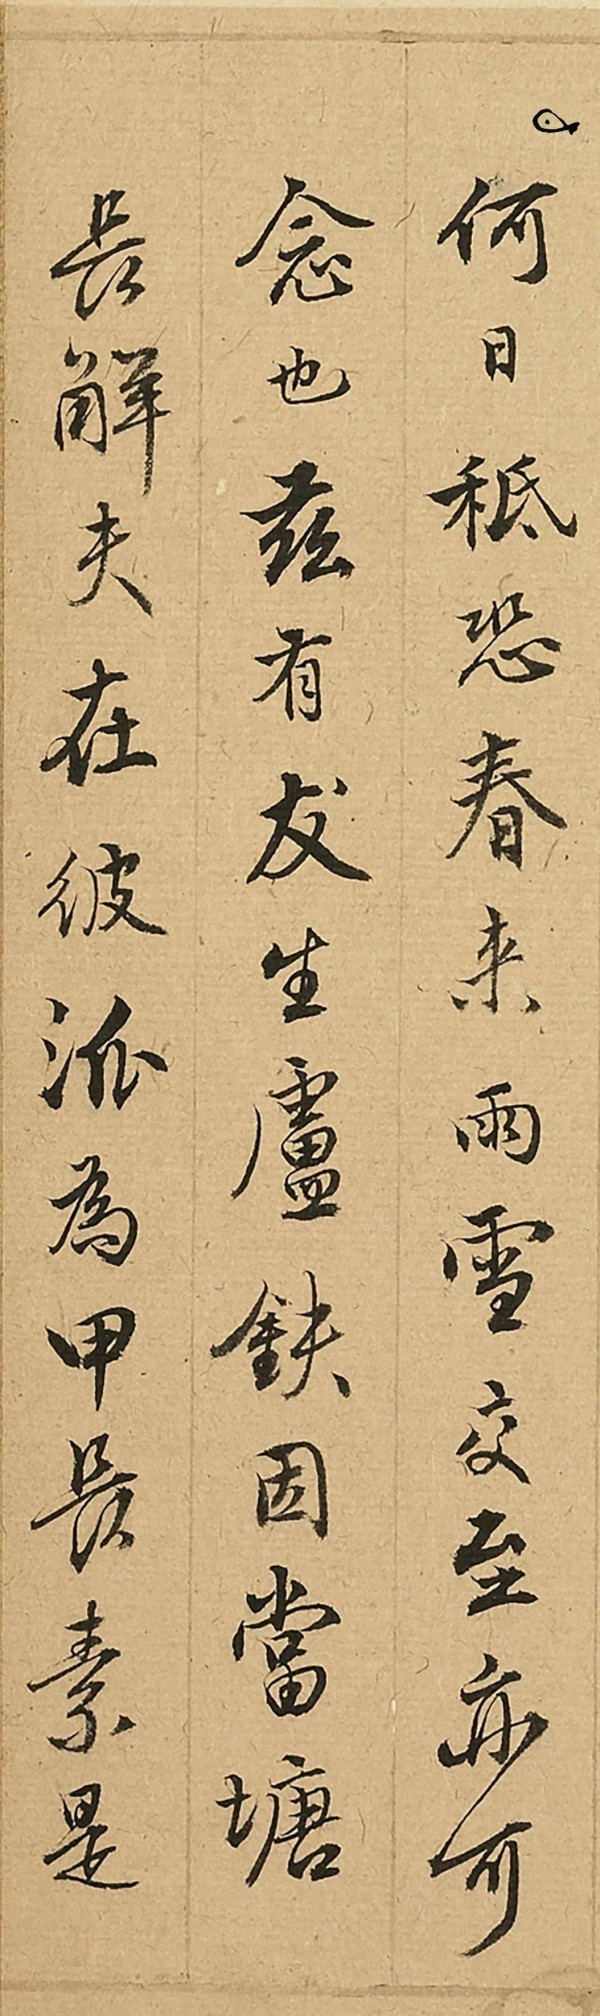 何日秪恐春来雨雪交至亦可
念也兹有友生盧鉄因當塘
長解夫在彼派為甲長素是